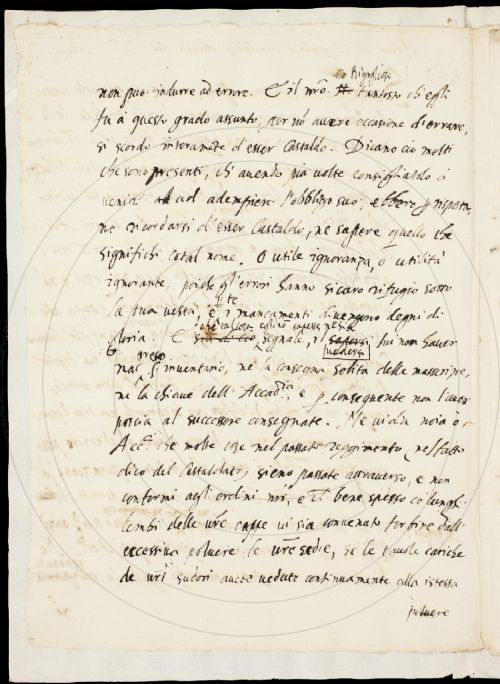 co Rigogliosi
non può indurre ad errore. E il nro tantosto ch'egli
fu à questo grado assunto, per nõ avere occasione d'errare,
si scordò interamẽte d'esser Castaldo. Dicano ciò molti
che sono presenti, ch'avendo più volte consigliatolo à
venire ad adempiere l'obbligo suo, ebbero p risposta,
nõ ricordarsi d'esser Castaldo, ne sapere quello che
significhi cotal nome. O utile ignoranza, o utilità
ignorante, poiche gl'errori hanno sicuro rifugio sotto
la tua vesta, e i mancamenti divengono degni di
gloria. E segnale, il vedersi lui non haver
mai preso l'inventario, ne la consegna solita delle masserizie,
nè la chiave dell'Accadia, e p conseguente non l'aver
poscia al successore consegnate. Ne vi dia noia ò
Acci che molte cose nel passato reggimento, nel fatto
dico del Castaldato, sieno passate attraverso, e non
conformi agli ordini nri, e bene spesso co' lunghi
lembi delle vre cappe vi sia convenuto forbire dall'
eccessiva polvere le vre sedie, se le tavole cariche
de vri sudori avete vedute continuamente alla istessa
polvere